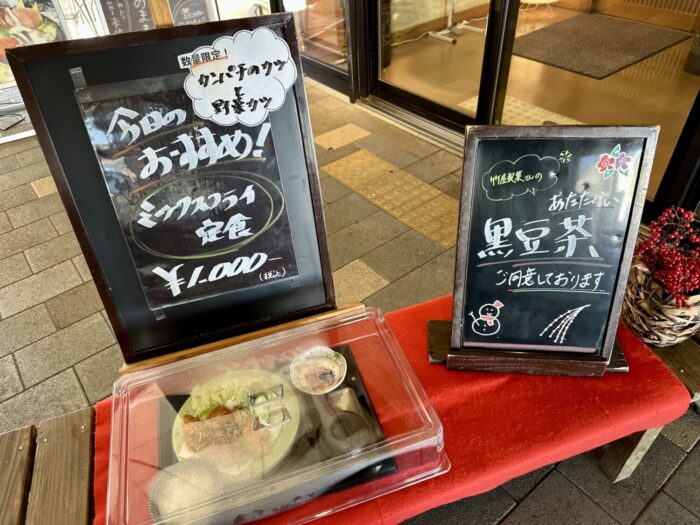 数量限定!
カンパチのカツ
と
野菜カツ
今日の
おすすめ!
ミックスフライ
定食
¥1,000-
(税込)
竹屋製菓さんの
あたたかい
黒豆茶
ご用意しております